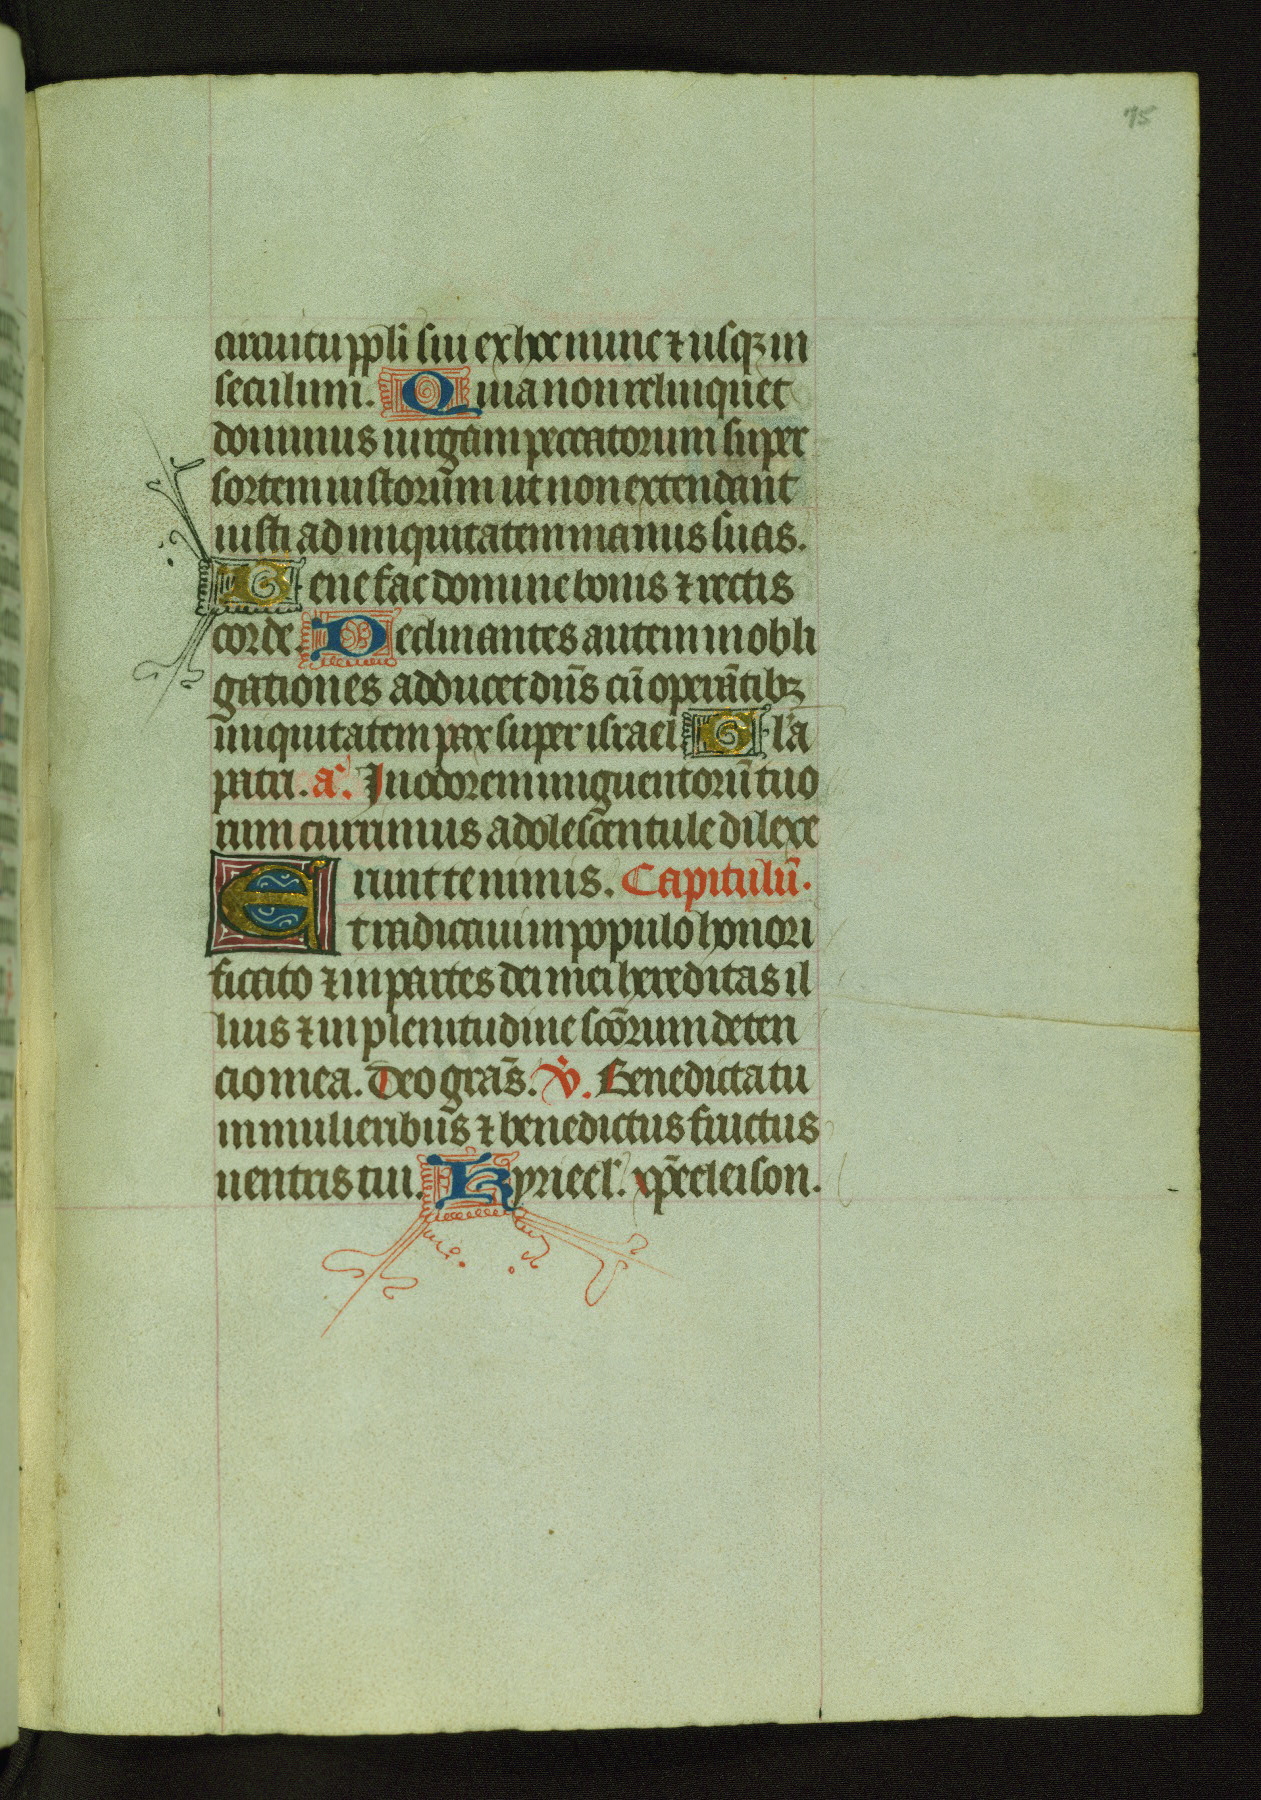 75
circuitu ppl̄i sui ex hoc nunc ⁊ usqꝫ in
seculum. Quia non relinquet
dominus uirgam peccatorum super
sortem iustorum ut non extendant
iusti ad iniquitatem manus suas.
Bene fac domine bonis ⁊ rectis
corde. Declinantes autem in obli
gationes adducet dn̄s cū operātibꝫ
iniquitatem pax super israel Gl'a
patri. a͞. In odorem unguentorū tuo
rum currimus adolescentule dilexe
runt te nimis. Capitulū.
Et radicaui in populo honori
ficato ⁊ in partes dei mei hereditas il
lius ⁊ in plenitudine sc̄orum deten
cio mea. Deo gra͞s. V̊. Benedicta tu
in mulieribus ⁊ benedictus fructus
uentris tui. Kyrieel'. xp̄eeleison.